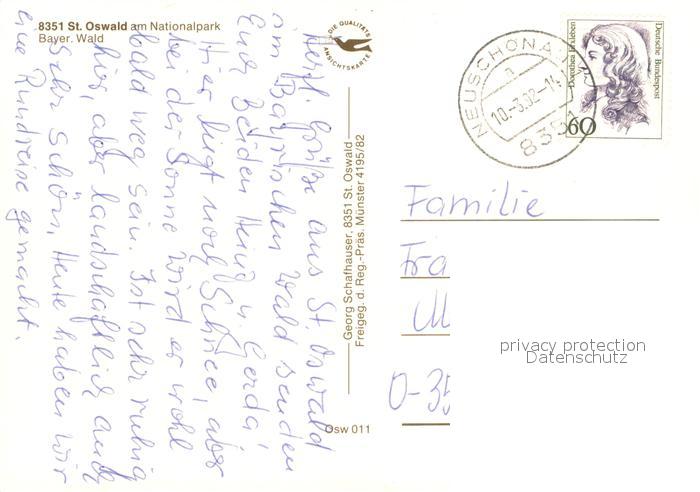 8351 St. Oswald am Nationalpark
Bayer. Wald
DIE QUALITÄTS
ANSICHTSKARTE
Herzl. Grüße aus St. Oswald
im Bayrischen Wald senden
Euch beiden Heinz u. Gerda,
Hier liegt noch Schnee, aber
bei der Sonne wird er wohl
bald weg sein. Ist sehr ruhig
hier, aber landschaftlich auch
sehr schön, Heute haben wir
eine Rundreise gemacht.
Georg Schafhauser, 8351 St. Oswald
Freigeg. d. Reg.-Präs. Münster 4195/82
Osw 011
NEUSCHÖNAU
a
10.-3.92-14
8351
Deutsche Bundespost
60
Familie
Fra
M
D-35
privacy protection
Datenschutz